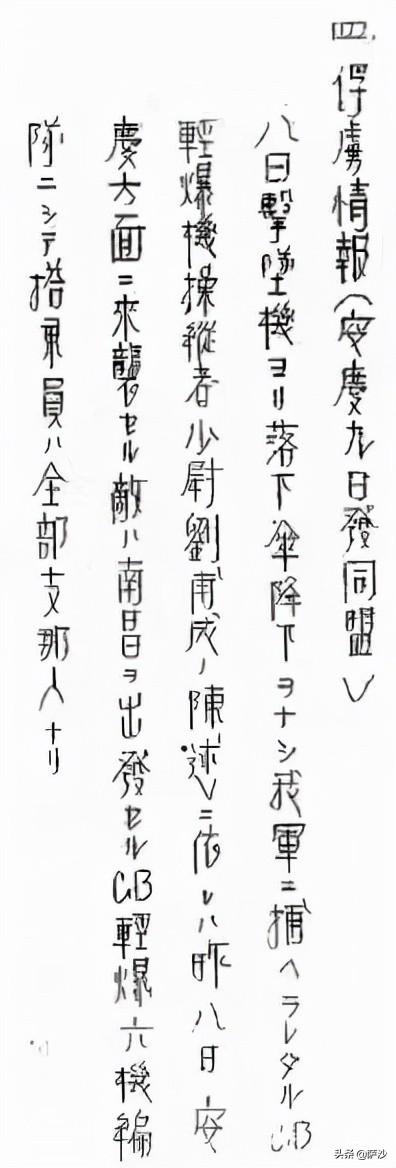 四、俘虜情報（安慶九日發同盟）
八日擊墜機ヨリ落下傘降下ヲナシ我軍ニ捕ヘラレタルCB
輕爆機操縱者少尉劉甫成ノ陳述ニ依レハ昨八日安
慶方面ニ來襲セル敵ハ南昌ヲ出發セルCB輕爆六機編
隊ニシテ搭乘員ハ全部支那人ナリ
头条@萨沙